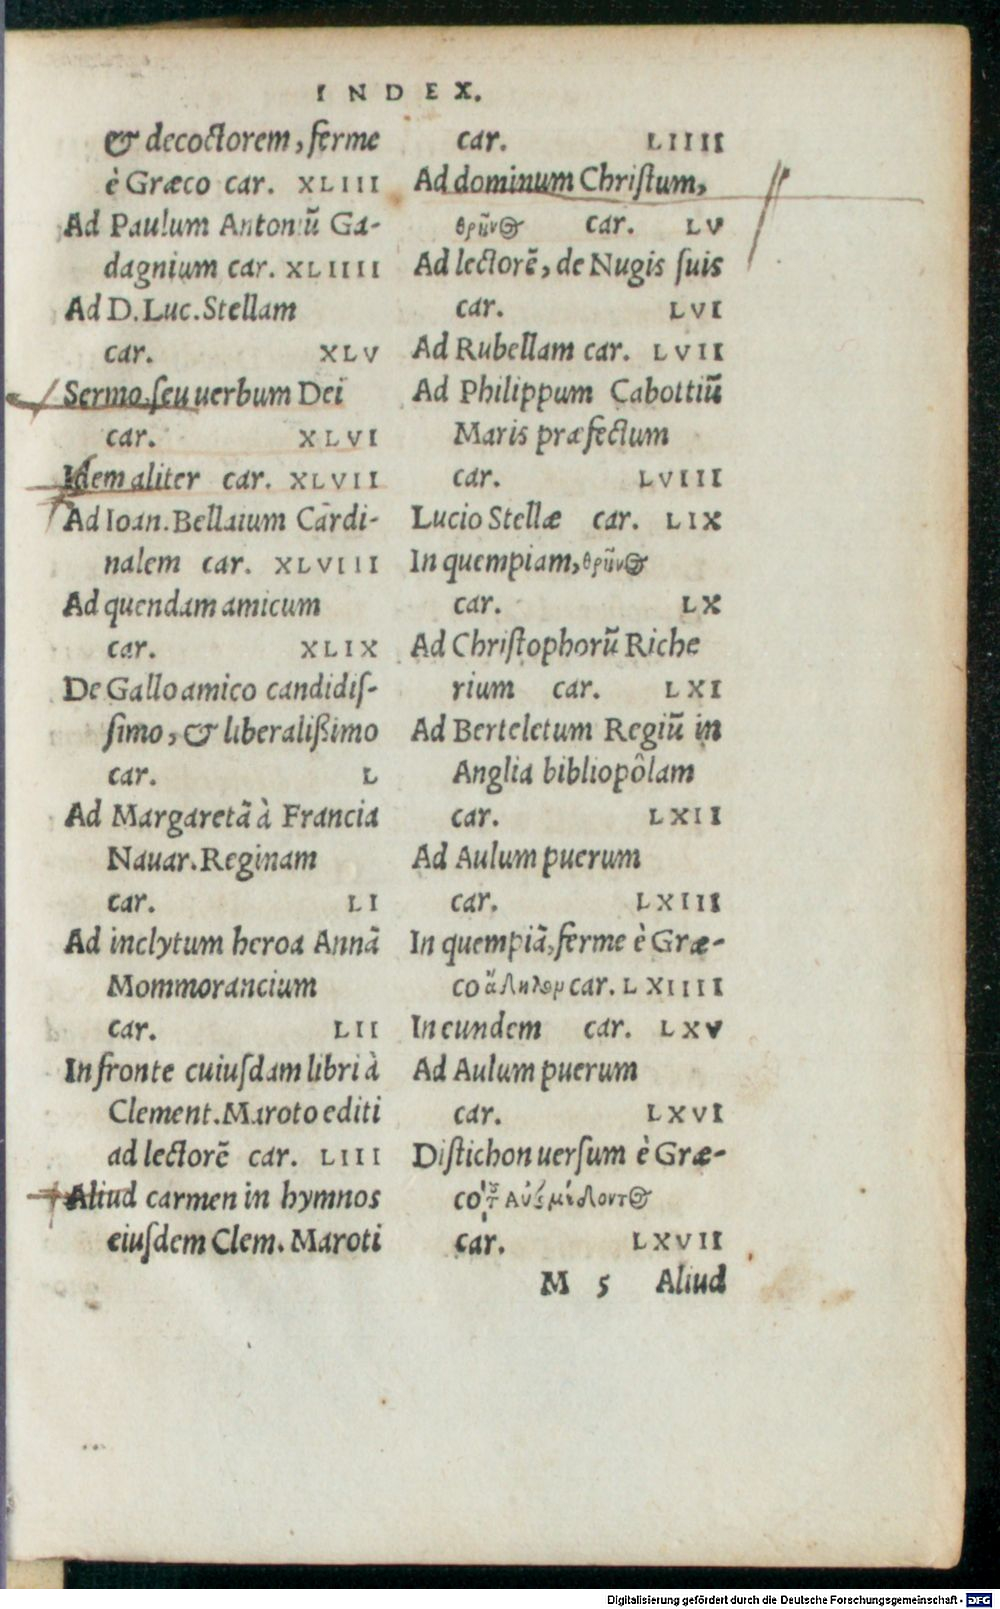 INDEX.
& decoctorem, ferme
è Græco car. XLIII
Ad Paulum Antoniũ Ga-
dagnium car. XLIIII
Ad D. Luc. Stellam
car. XLV
Sermo, seu uerbum Dei
car. XLVI
Idem aliter car. XLVII
Ad Ioan. Bellaium Cardi-
nalem car. XLVIII
Ad quendam amicum
car. XLIX
De Gallo amico candidiſ-
ſimo, & liberalißimo
car. L
Ad Margaretã à Francia
Nauar. Reginam
car. LI
Ad inclytum heroa Annã
Mommorancium
car. LII
In fronte cuiuſdam libri à
Clement. Maroto editi
ad lectorẽ car. LIII
Aliud carmen in hymnos
eiuſdem Clem. Maroti
car. LIIII
Ad dominum Chriſtum,
θρῆνος car. LV
Ad lectorẽ, de Nugis ſuis
car. LVI
Ad Rubellam car. LVII
Ad Philippum Cabottiũ
Maris præfectum
car. LVIII
Lucio Stellæ car. LIX
In quempiam, θρῆνος
car. LX
Ad Chriſtophorũ Riche
rium car. LXI
Ad Berteletum Regiũ in
Anglia bibliopôlam
car. LXII
Ad Aulum puerum
car. LXIII
In quempiã, ferme è Græ-
co car. LXIIII
In eundem car. LXV
Ad Aulum puerum
car. LXVI
Diſtichon uerſum è Græ-
co
car. LXVII
M 5 Aliud
Digitalisierung gefördert durch die Deutsche Forschungsgemeinschaft - DFG